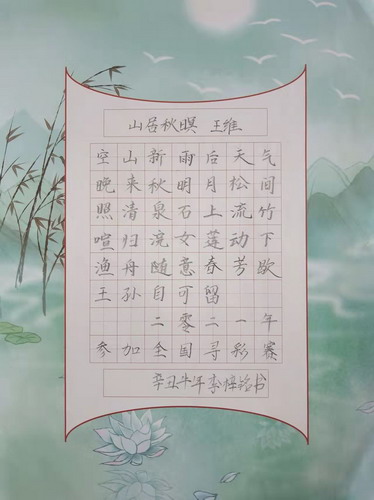 山居秋暝 王维
空山新雨后天气
晚来秋明月松间
照清泉石上流竹
喧归浣女莲动下
渔舟随意春芳歇
王孙自可留
二零二一年
参加全国寻彩赛
辛丑牛年李梓铭书